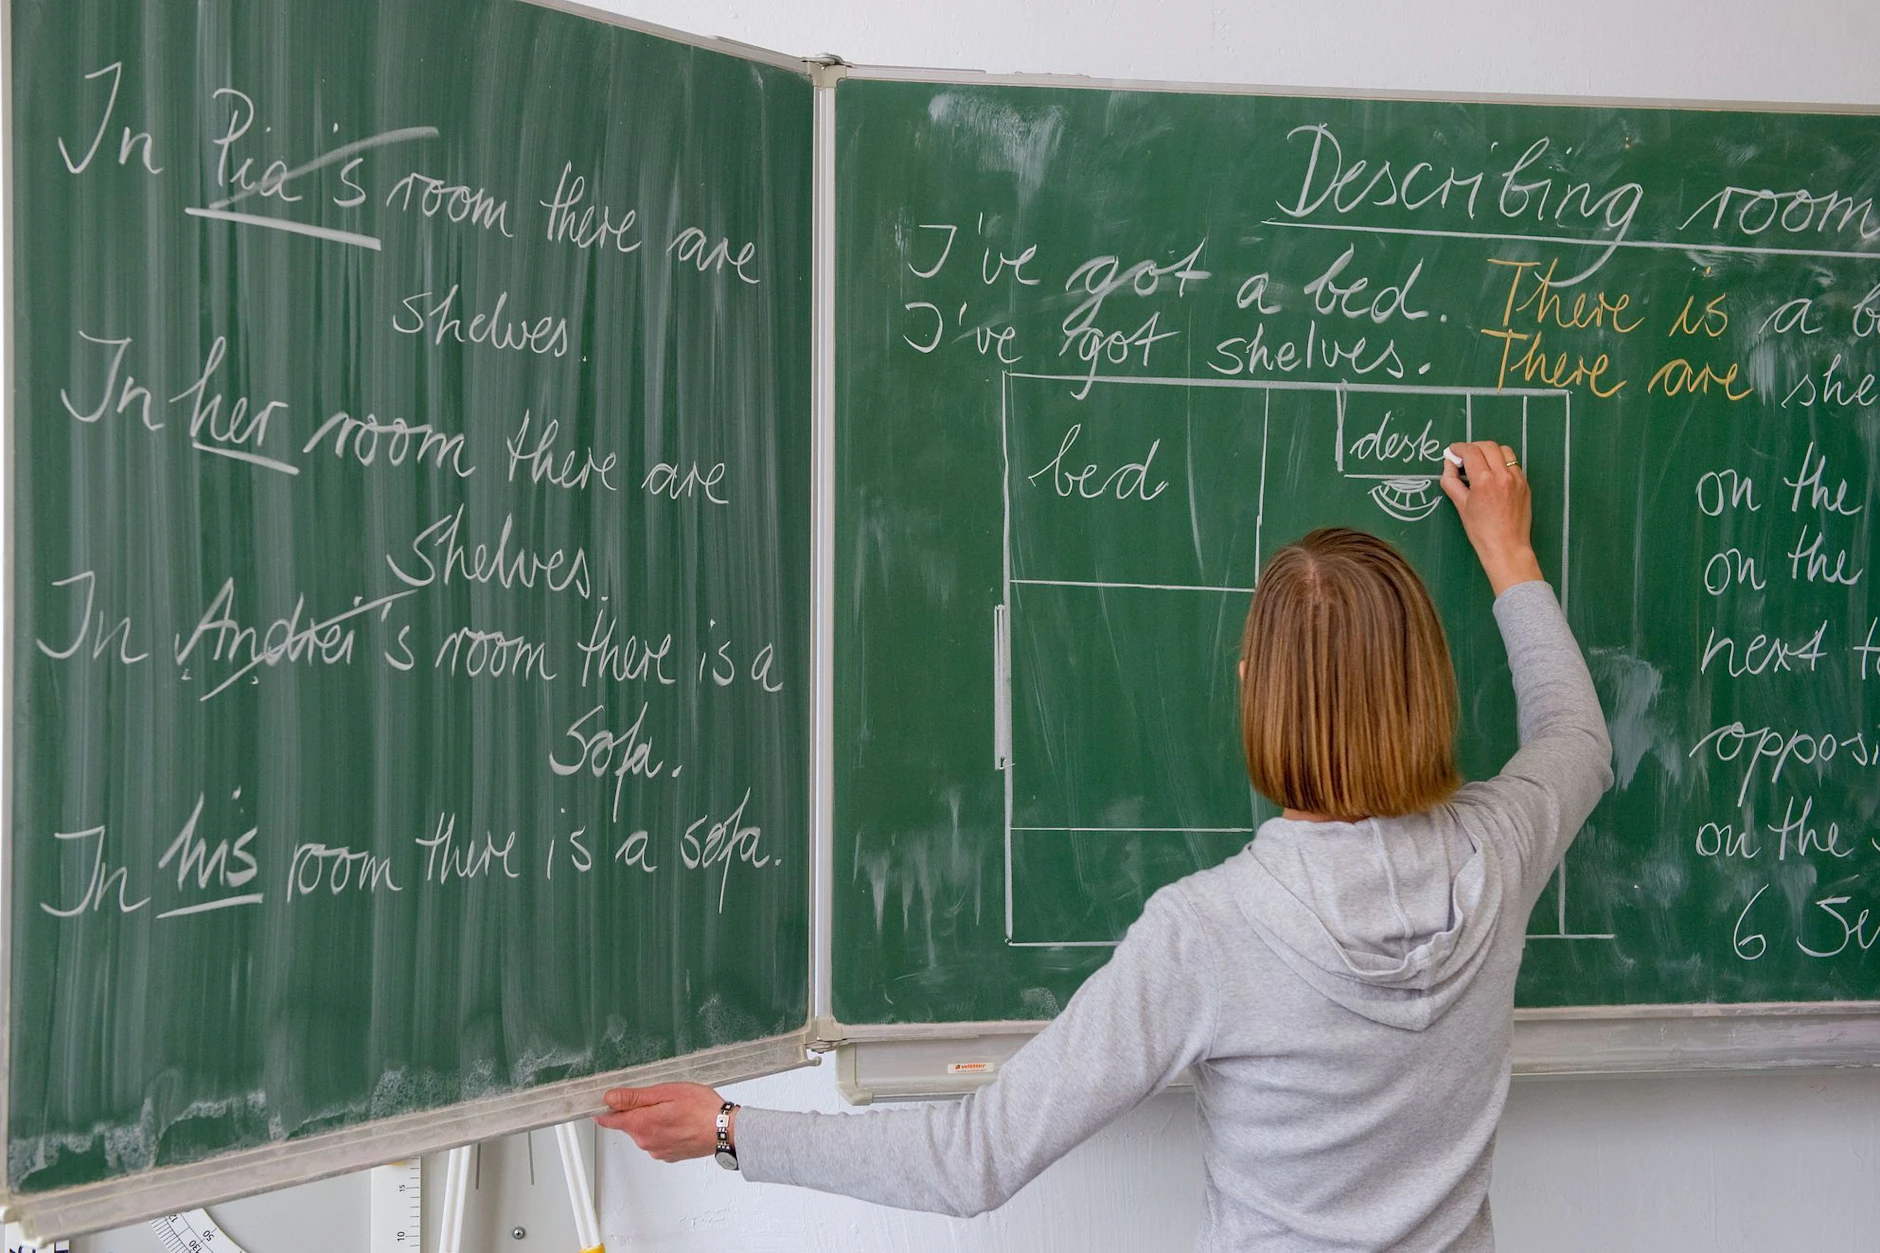 In Pia's room there are
shelves.
In her room there are
shelves.
In Andrei's room there is a
sofa.
In his room there is a sofa.
Describing room
I've got a bed. There is a b
I've got shelves. There are she
bed
desk
on the
on the
next t
opposi
on the
6 Se